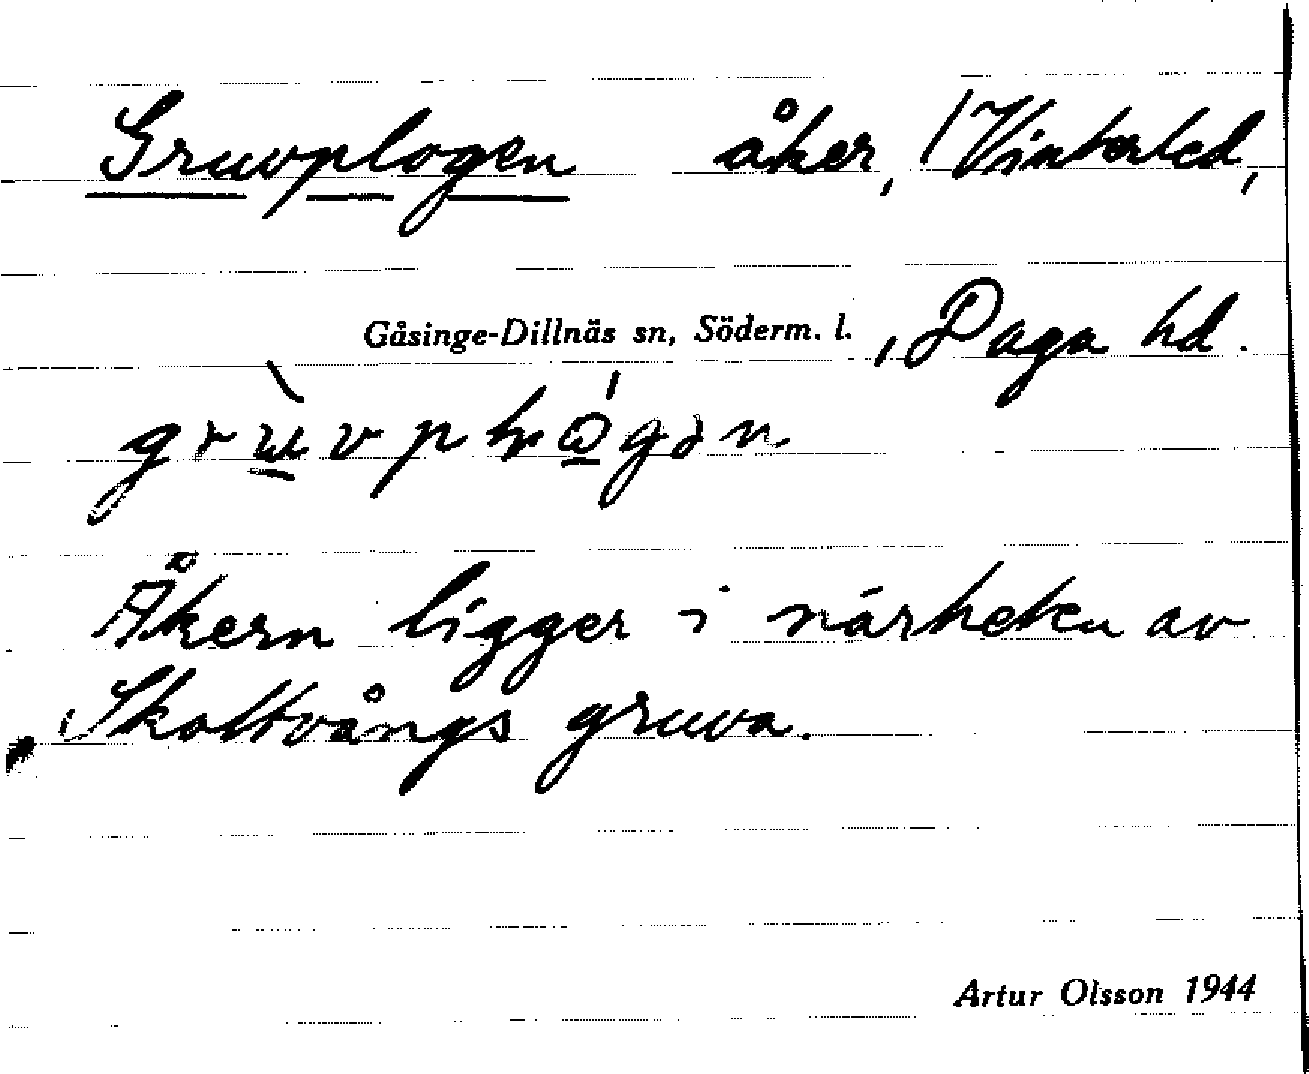 Gruvplogen åker, Vinterled,
Gåsinge-Dillnäs sn, Söderm. l., Daga hd.
Åkern ligger i närheten av
Skottvångs gruva.
Artur Olsson 1944